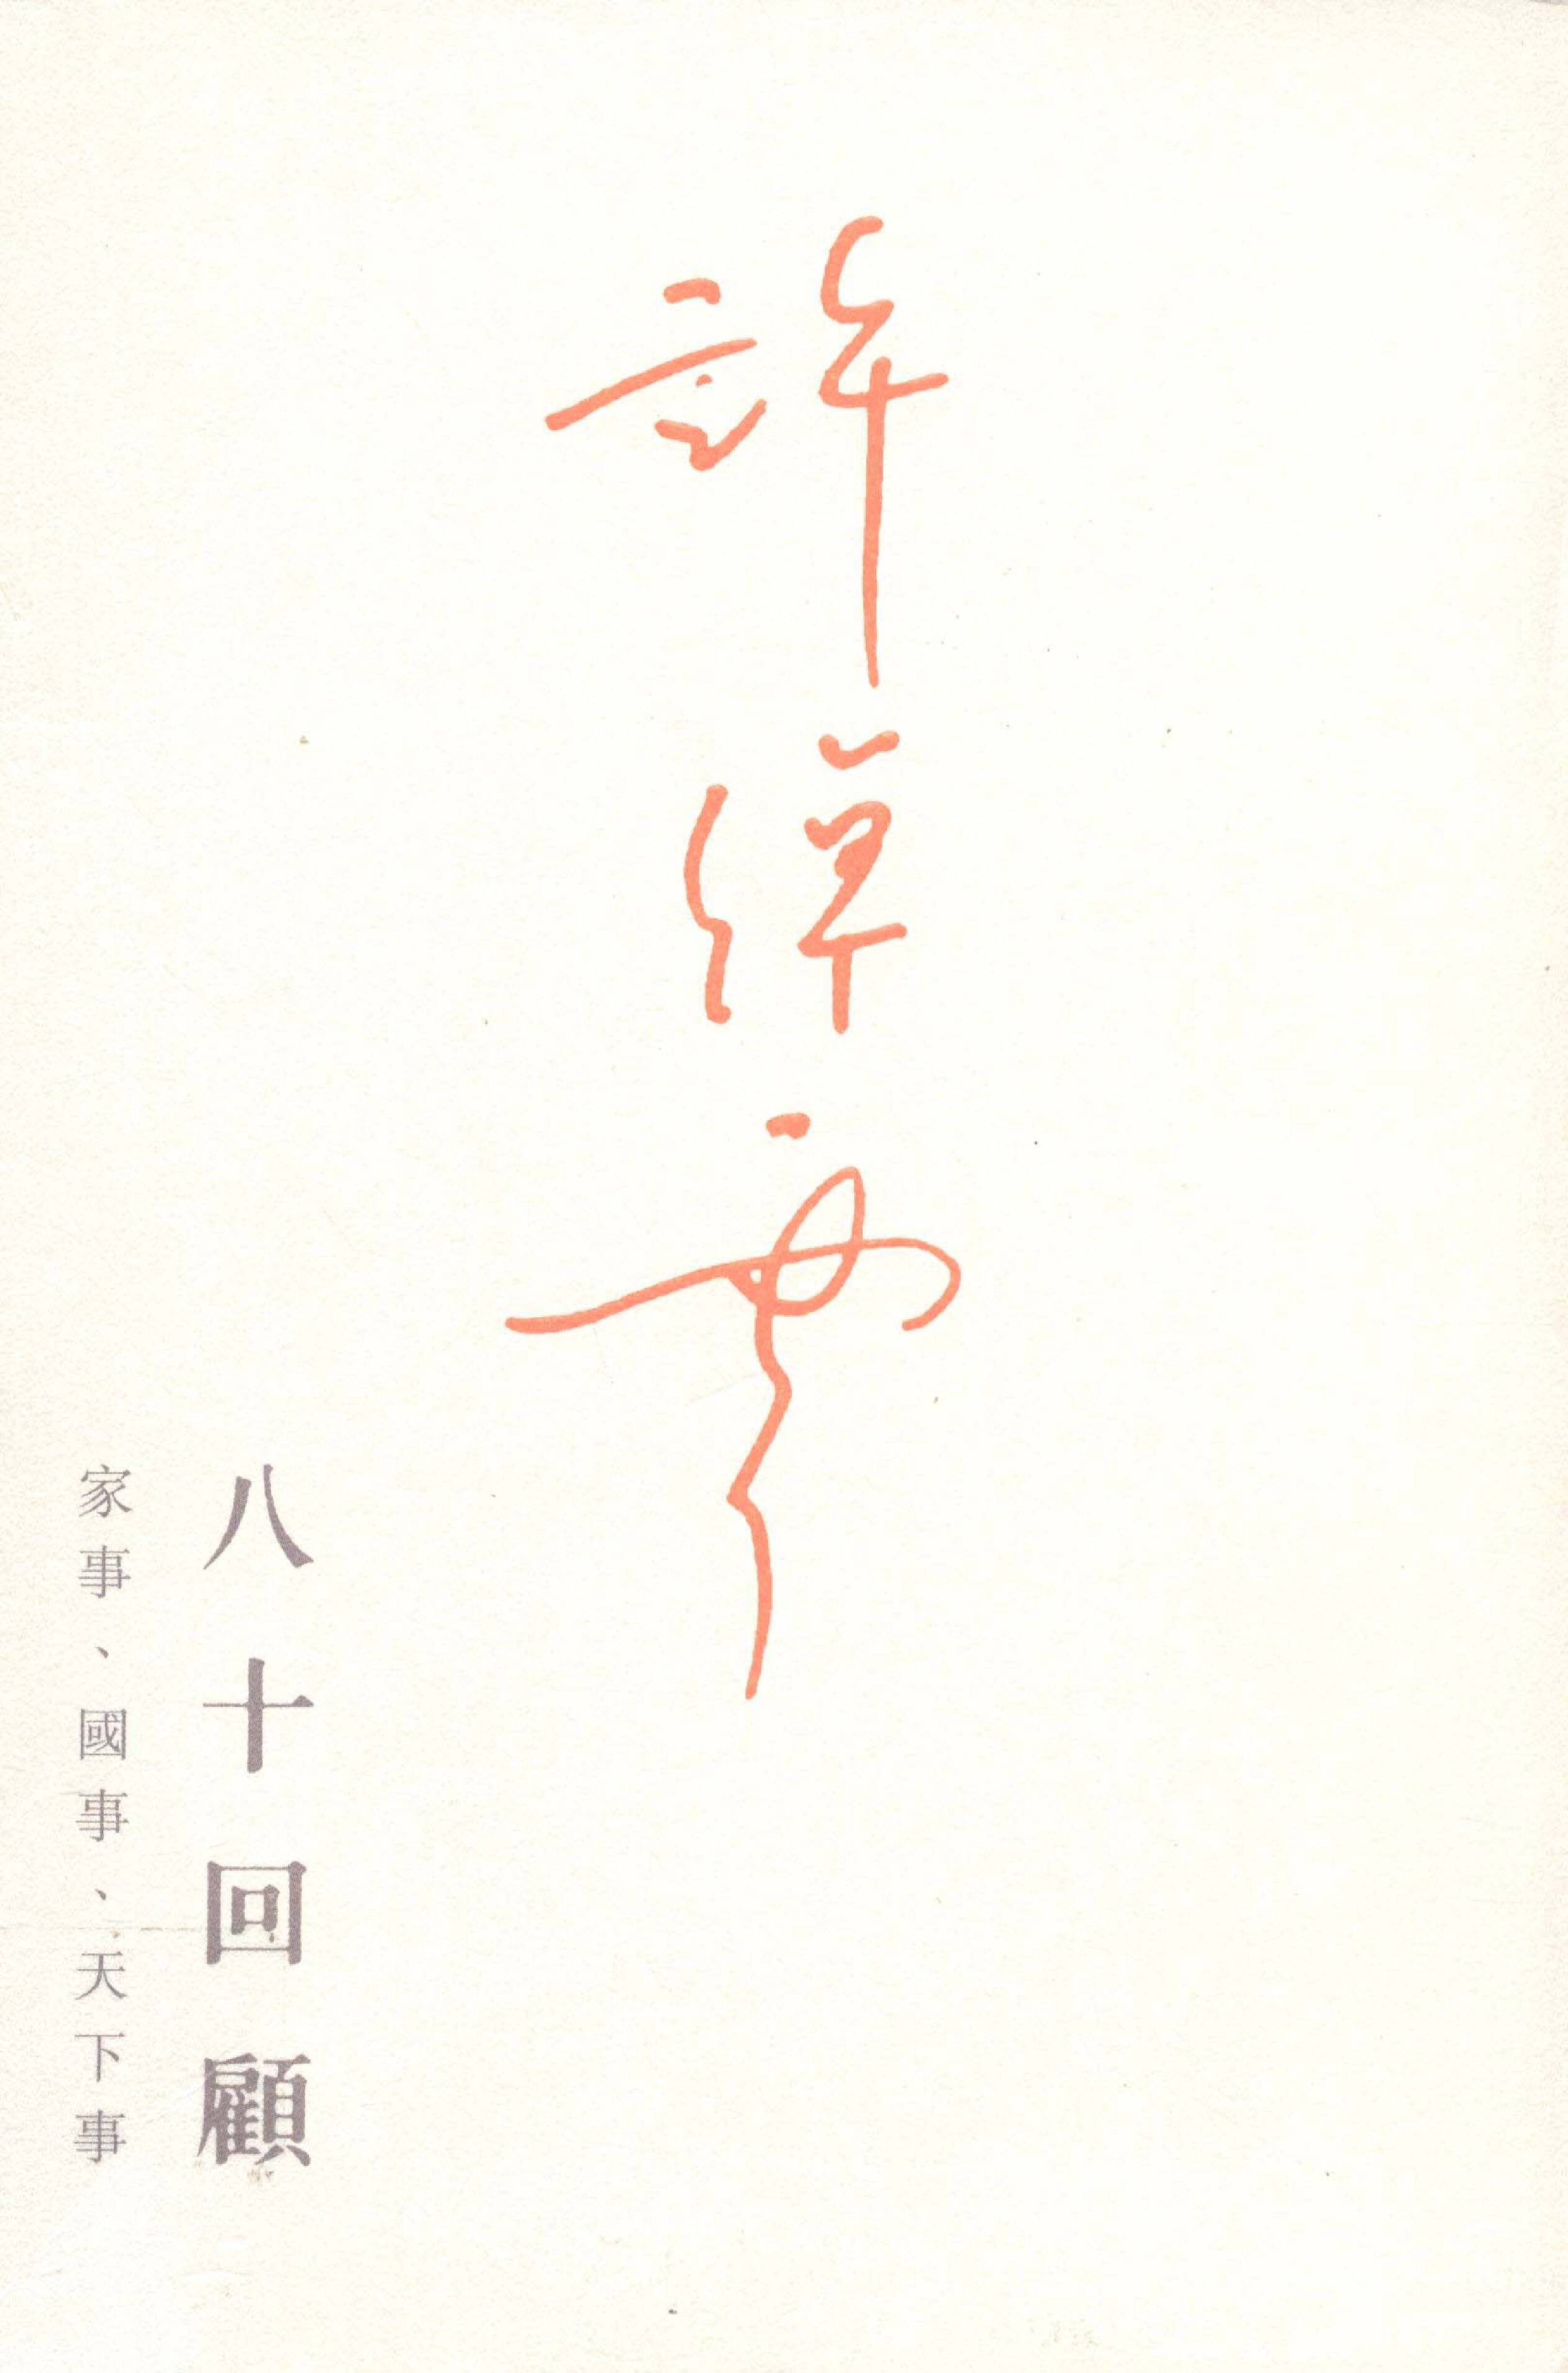 許倬雲
八十回顧
家事、國事、天下事